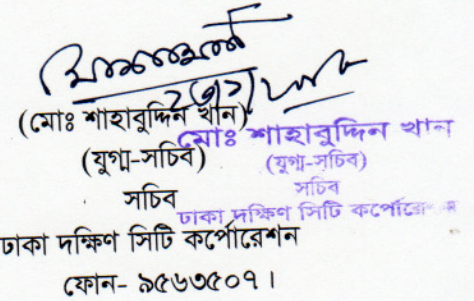 (মোঃ শাহাবুদ্দিন খান)
(যুগ্ম-সচিব)
সচিব
ঢাকা দক্ষিণ সিটি কর্পোরেশন
ফোন- ৯৫৬৩৫০৭।
মোঃ শাহাবুদ্দিন খান
(যুগ্ম-সচিব)
সচিব
ঢাকা দক্ষিণ সিটি